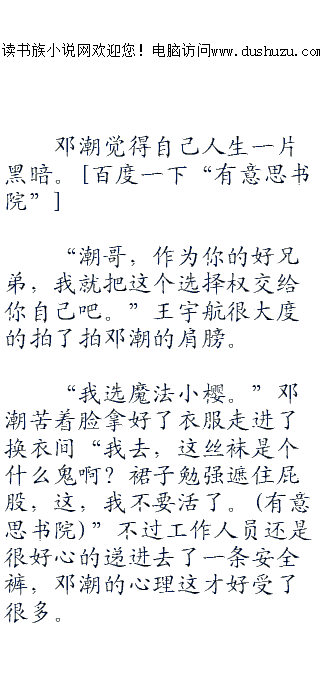 读书族小说网欢迎您！电脑访问www.dushuzu.com
邓潮觉得自己人生一片
黑暗。[百度一下“有意思书
院”]
“潮哥，作为你的好兄
弟，我就把这个选择权交给
你自己吧。”王宇航很大度
的拍了拍邓潮的肩膀。
“我选魔法小樱。”邓
潮苦着脸拿好了衣服走进了
换衣间“我去，这丝袜是个
什么鬼啊？裙子勉强遮住屁
股，这，我不要活了。(有意
思书院)”不过工作人员还是
很好心的递进去了一条安全
裤，邓潮的心理这才好受了
很多。